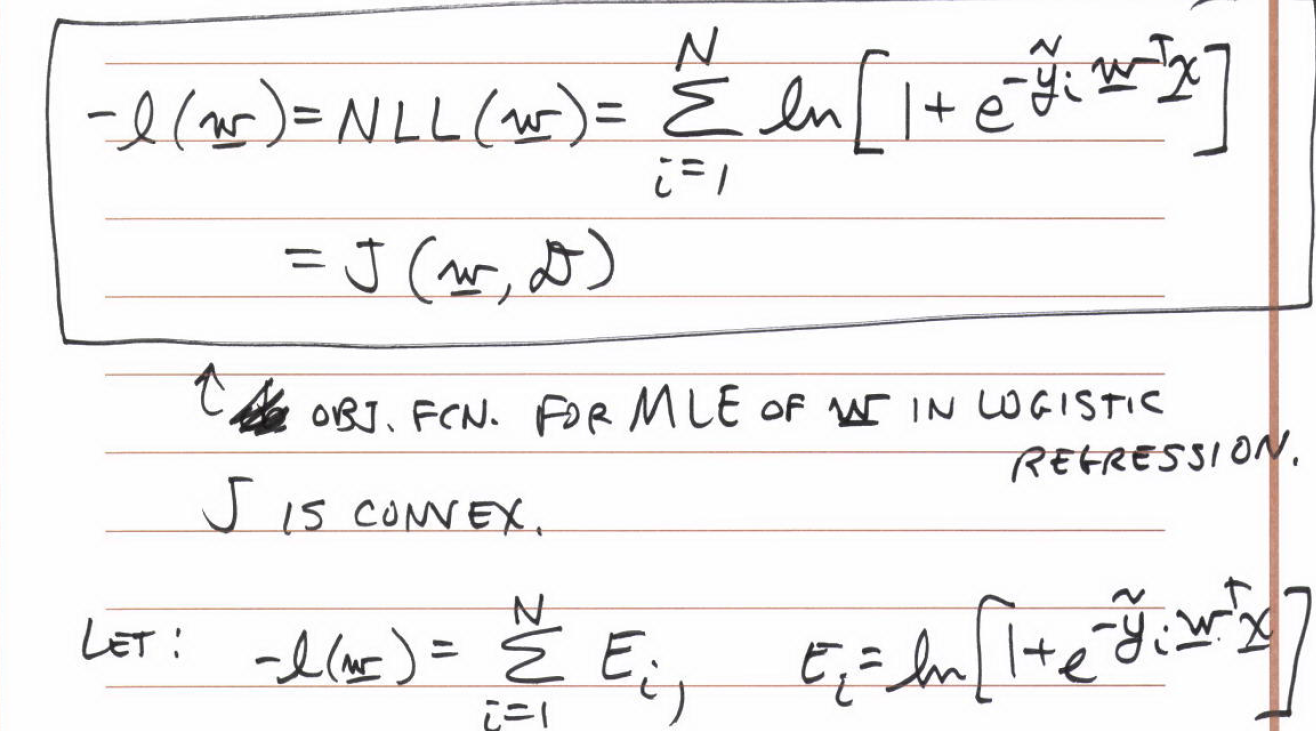 -l(w) = NLL(w) = Σ_{i=1}^{N} ln[1 + e^{-ỹ_i w^T x}]
= J(w, D)
↑ OBJ. FCN. FOR MLE OF w IN LOGISTIC
REGRESSION.
J IS CONVEX.
LET: -l(w) = Σ_{i=1}^{N} E_i, E_i = ln[1 + e^{-ỹ_i w^T x}]